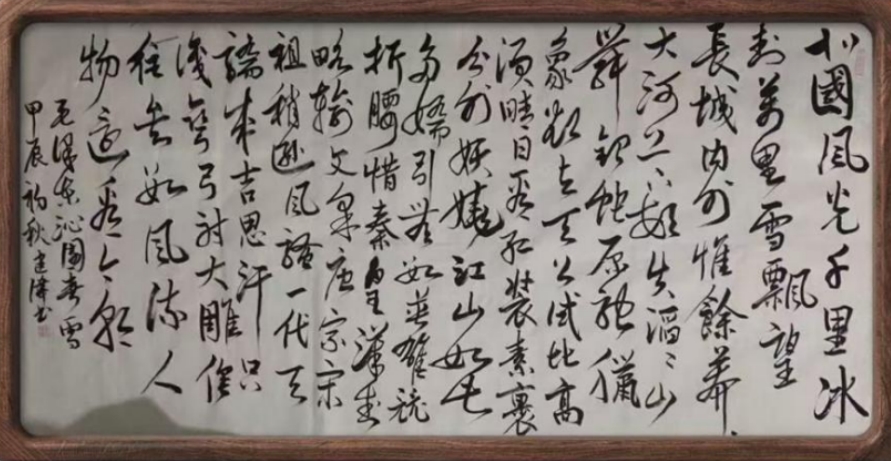 北國風光千里冰
封萬里雪飄望
長城内外惟餘莽、
大河上下頓失滔〻山
舞銀蛇原馳臘
象欲与天公試比高
須晴日看紅裝素裹
分外妖嬈江山如此
多嬌引無數英雄競
折腰惜秦皇漢武
略輸文采唐宗宋
祖稍遜風騷一代天
驕成吉思汗只
識彎弓射大雕俱
往矣數風流人
物還看今朝
毛澤東沁園春雪
甲辰初秋建偉書